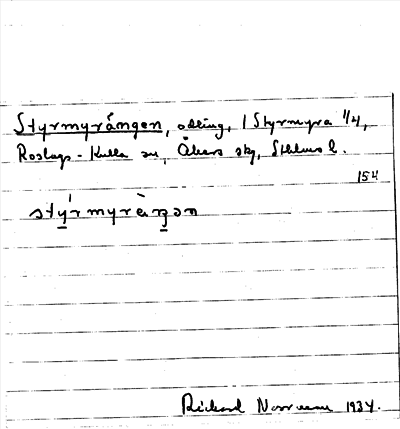 Styrmyrängen, odling, 1 Styrmyra 1/4,
Roslags-Kulla sn, Åkers skg, Sthlms l.
154
stýrmyràŋən
Richard Norrman 1934.